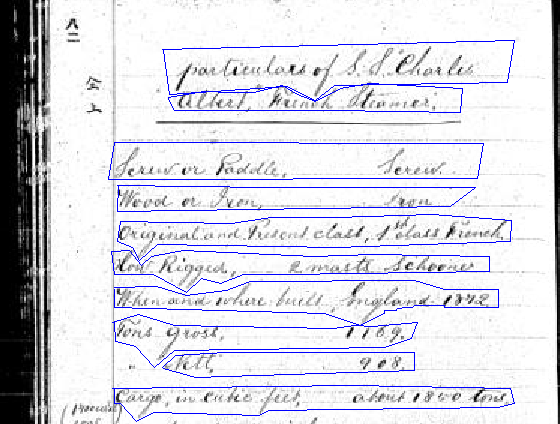 particulars of S. S. Charles
Albert, French Steamer.
Screw or Paddle, Screw.
Wood or Iron, Iron
Original and Present class, 1st class French.
How Rigged, 2 masts Schooner
When and where built, England 1872.
Tons gross, 1169.
" Nett. 908.
Cargo, in cubic feet, about 1850 tons